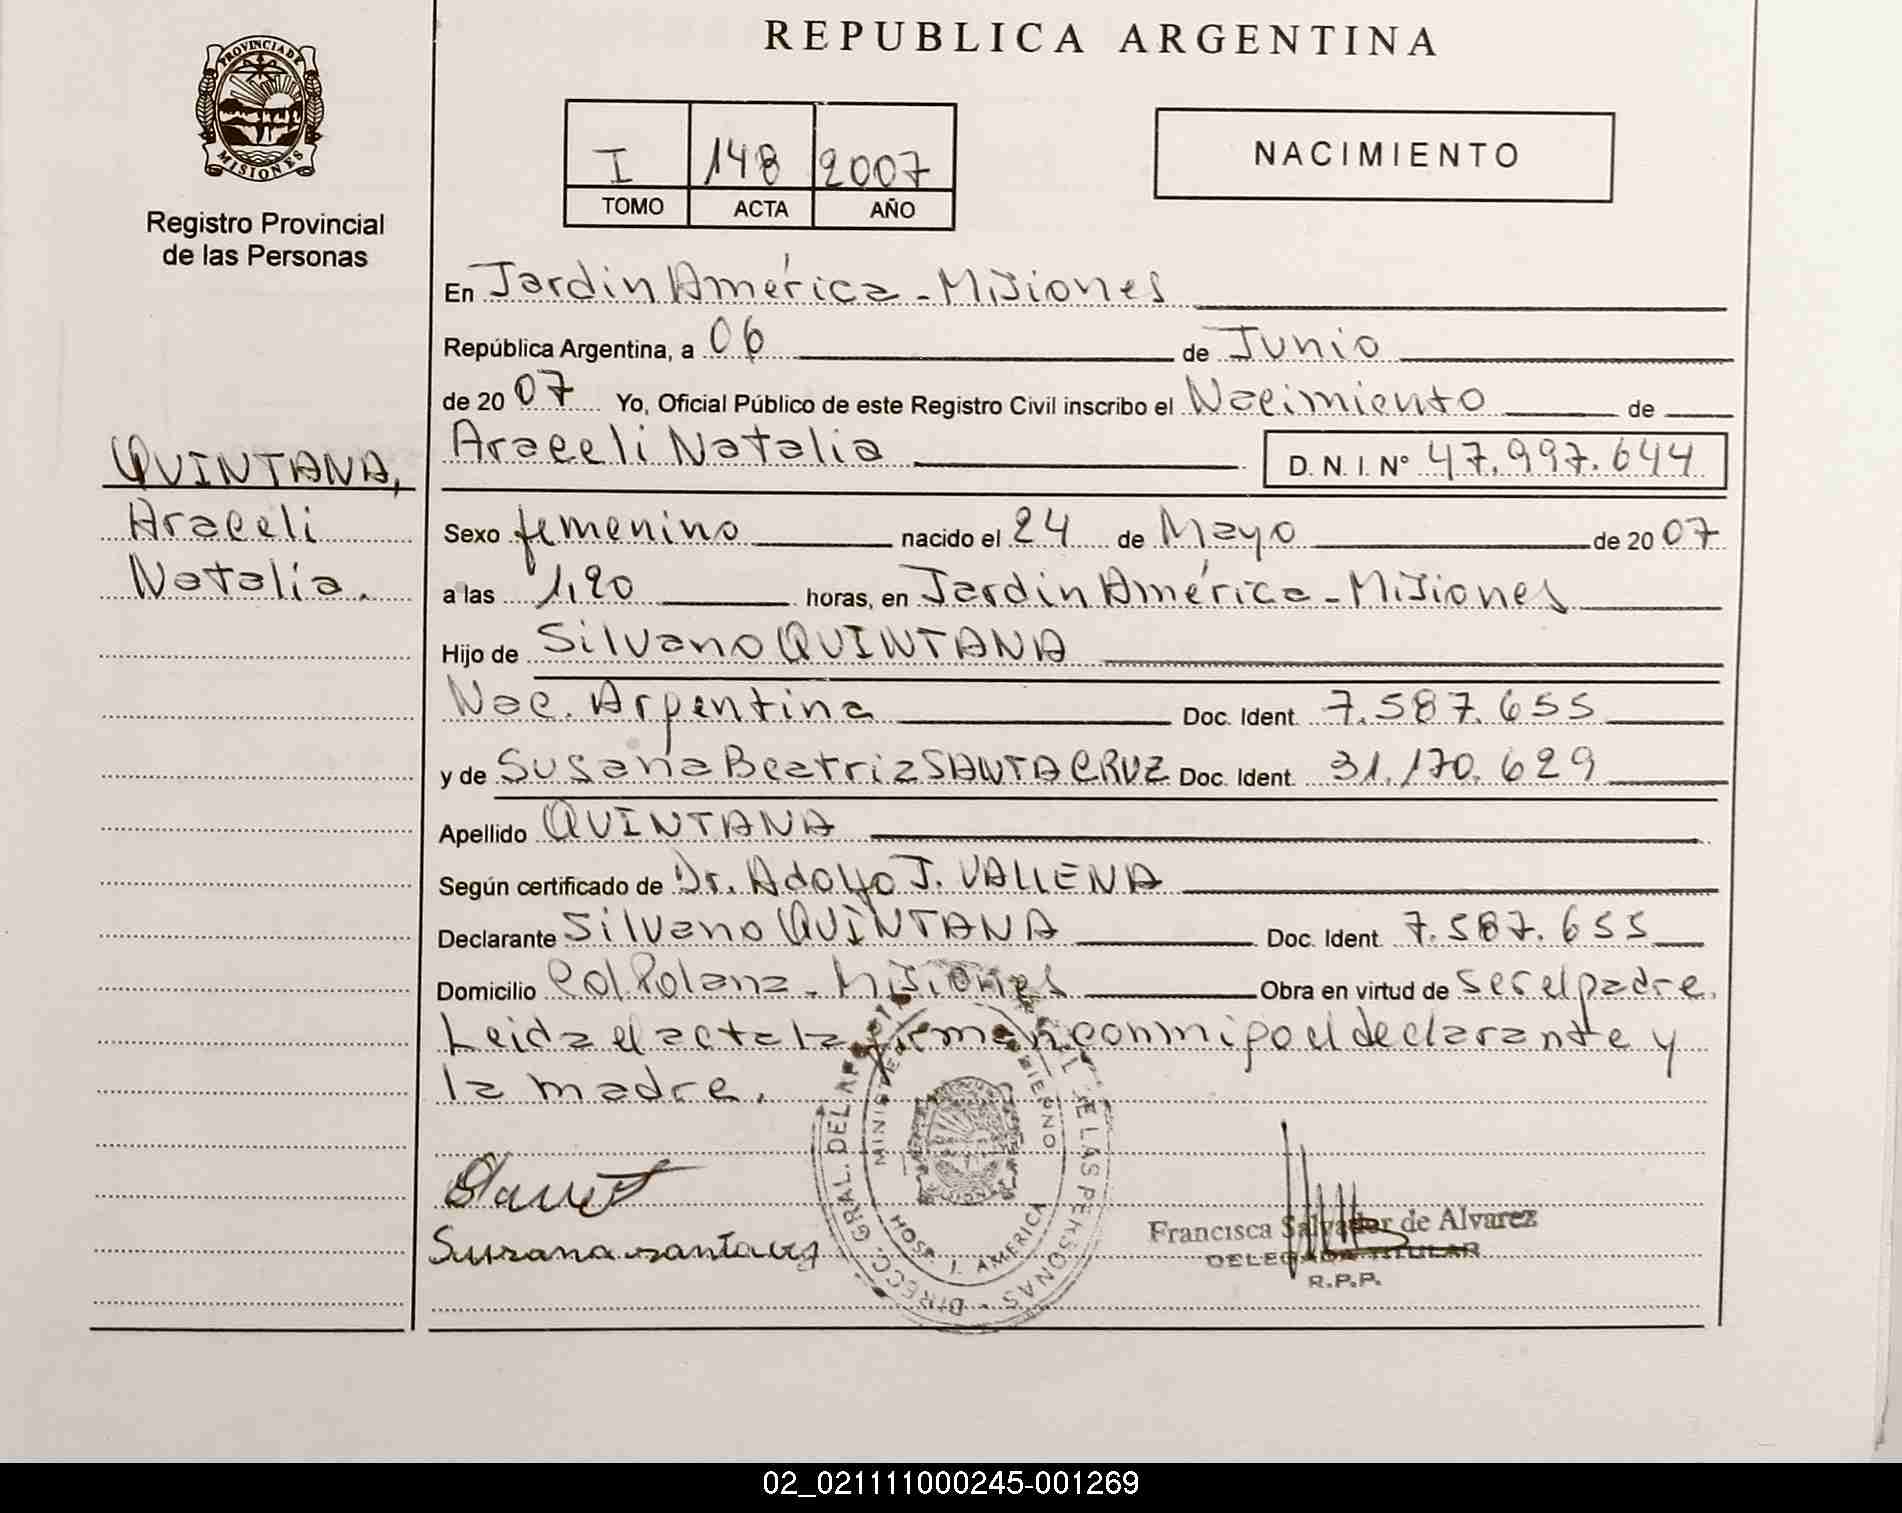 REPUBLICA ARGENTINA
PROVINCIA DE
MISIONES
Registro Provincial
de las Personas
I 148 2007
TOMO ACTA AÑO
NACIMIENTO
En Jardin América - Misiones
República Argentina, a 06 de Junio
de 2007 Yo, Oficial Público de este Registro Civil inscribo el Nacimiento de
Araceli Natalia D. N. I. Nº 47.997.644
QUINTANA,
Araceli
Natalia.
Sexo femenino nacido el 24 de Mayo de 2007
a las 1,20 horas, en Jardin América - Misiones
Hijo de Silvano QUINTANA
Nac. Argentina Doc. Ident. 7.587.655
y de Susana Beatriz SANTA CRUZ Doc. Ident. 31.170.629
Apellido QUINTANA
Según certificado de Dr. Adolfo J. VALLENA
Declarante Silvano QUINTANA Doc. Ident. 7.587.655
Domicilio Col Polana - Misiones Obra en virtud de ser el padre.
Leida el acta la firman conmigo el declarante y
la madre.
Susana santacruz
HOSP. J. AMERICA
Francisca Salvador de Alvarez
DELEGADA TITULAR
R.P.P.
02_021111000245-001269